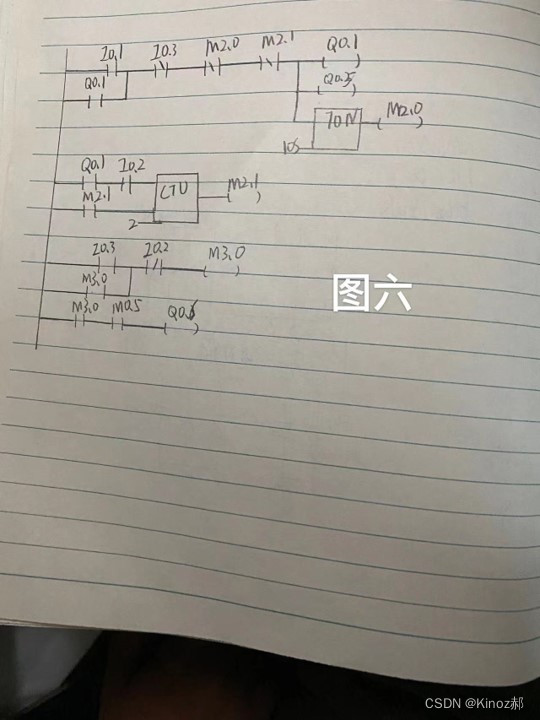 I0.1 I0.3 M2.0 M2.1 Q0.1
Q0.1
Q0.5
TON M2.0
10s
Q0.1 I0.2
CTU M2.1
M2.1
2
I0.3 I0.2 M3.0
M3.0
M3.0 M0.5 Q0.6
图六
CSDN @Kinoz郝